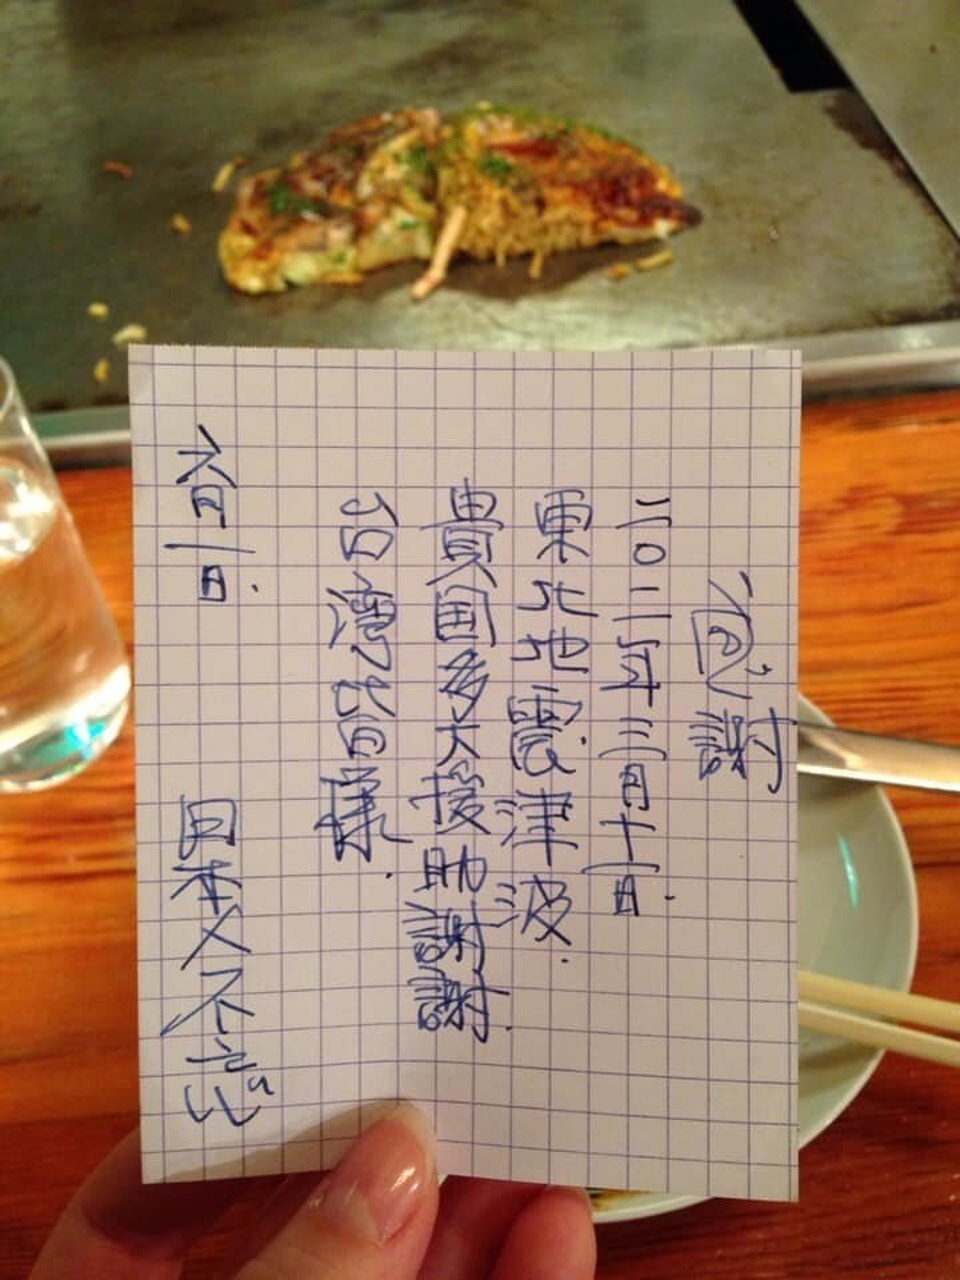 感謝
二〇一一年三月十一日.
東北地震津波.
貴国多大援助謝謝.
様.
六月一日. 日本人不